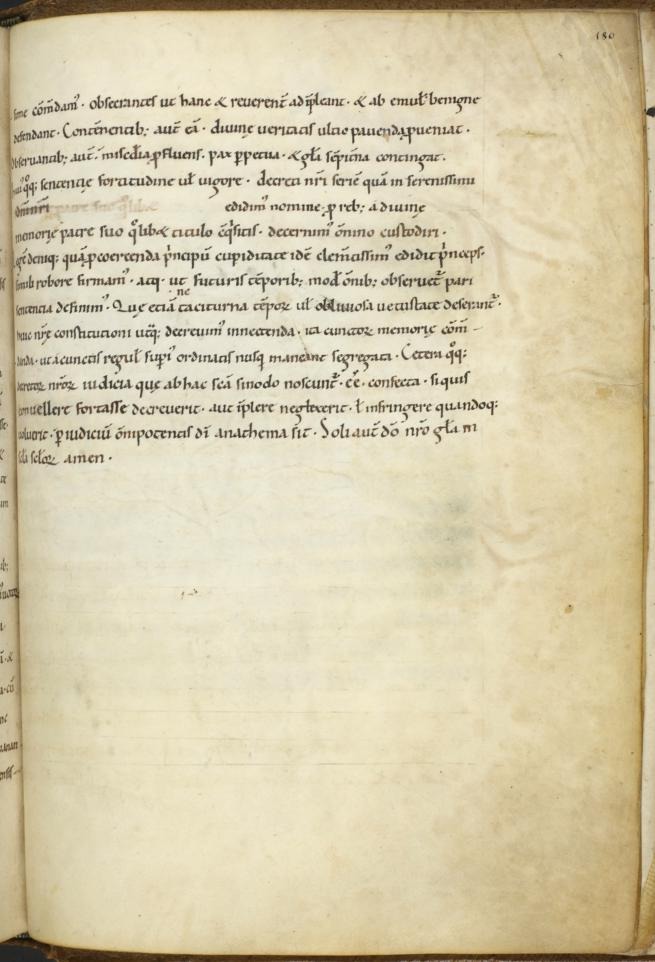 180
sime cōmdam᷒ · obsecrantes ut hanc & reverent̄ adīpleant · & ab emul̄ benigne
defendant · Contēnentib; aut̄ eā · diuinę ueritatis ultio pauenda ꝓueniat ·
Obseruantib; aut̄ · misc̄dia ꝓfluens · pax ꝑpetua · & gl̄a sēpit̄na contingat ·
q̊q; sentencię fortitudine ul̄ uigore · decreti nr̄i seriē quā in serenissimi
dm̄i nr̄i edidim᷒ nomine · ꝓ reb; a diuinę
memorię patre suo q̊libet titulo cq̄sitis · decernim᷒ om̄ino custodiri ·
deniq; quā ꝓ coercenda p̄ncipū cupiditate idē clem̄tissim᷒ edidit p̄nceps ·
simili robore firmam᷒ · atq · ut futuris tēporib; mod̄ om̄ib; obseruet᷑ pari
sentencia definim᷒ · Quę etiā ne taciturna tēpoꝝ ul̄ obliuiosa uetustate deserant᷑ ·
huic nr̄ę constitutioni utq̄; decreuim᷒ innectenda · ita cunctoꝝ memorię cōm̄
danda · ut a cunctis regul̄ sup̄i᷒ ordinatis nusq̄ maneant segregata · Cetera q̊q;
decretoꝝ nr̄oꝝ iudicia quę ab hac sc̄a sinodo noscunt᷑ · ēē · confecta · si quis
conuellere fortasse decreuerit · aut īplere neglexerit · ł infringere quandoq;
uoluerit · ꝑ iudiciū om̄ipotentis dī anathema sit · Soli aut̄ dō nr̄o gl̄a in
sc̄la sc̄loꝝ amen ·